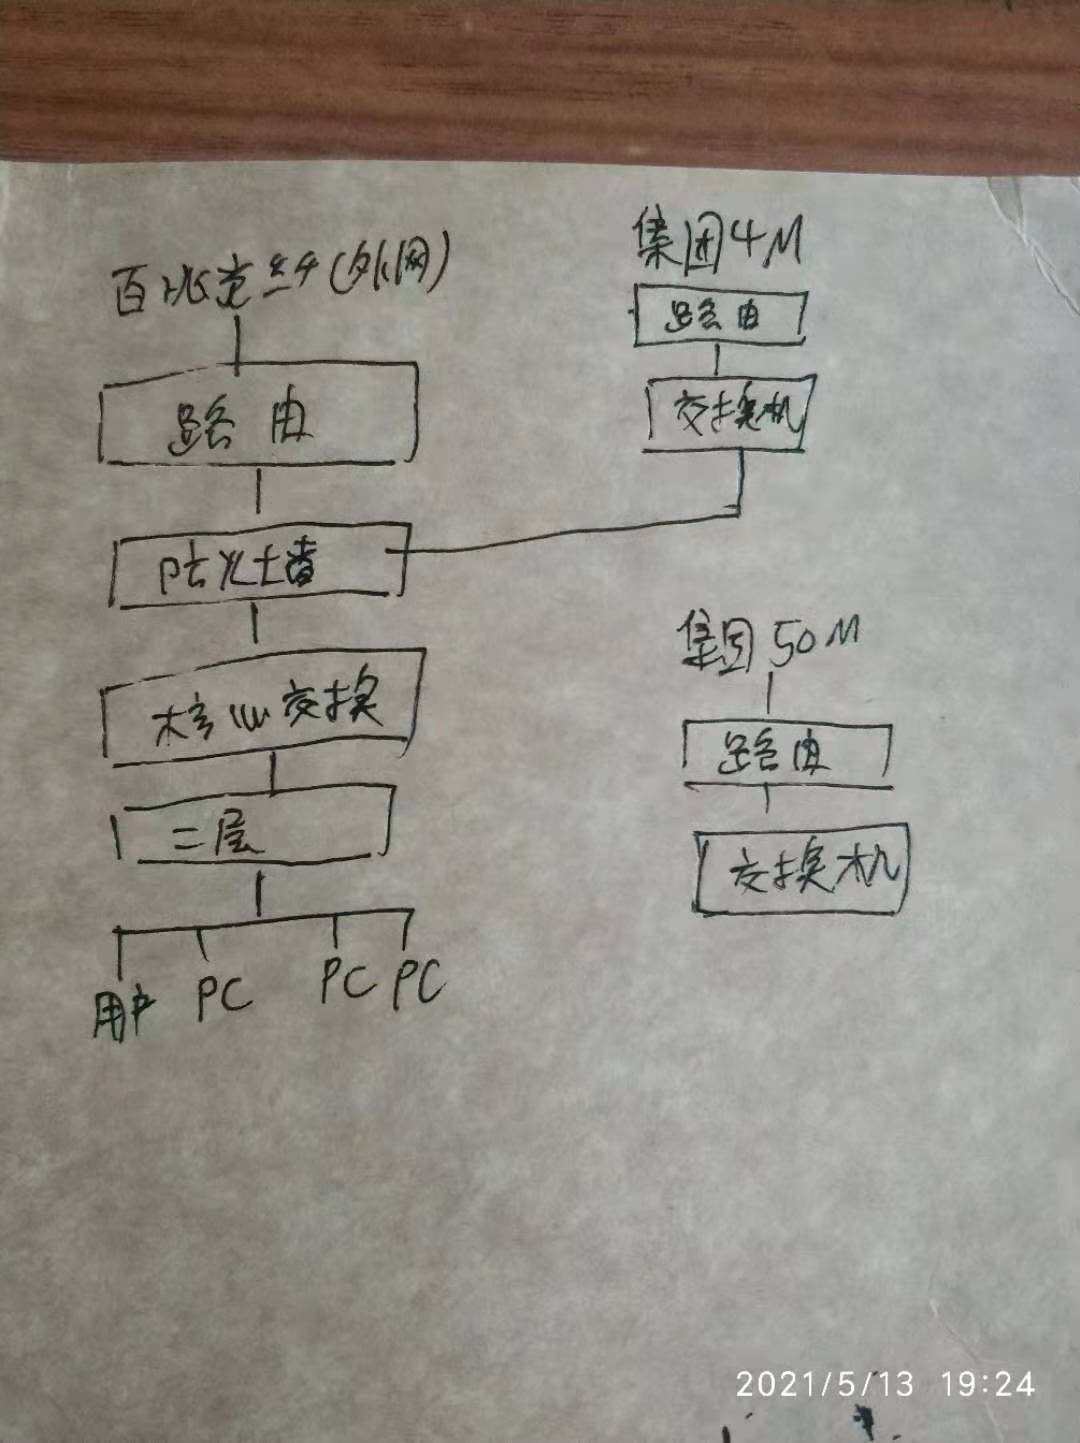 百兆光纤(外网)
路由
防火墙
核心交换
二层
用户 PC PC PC
集团4M
路由
交换机
集团50M
路由
交换机
2021/5/13 19:24